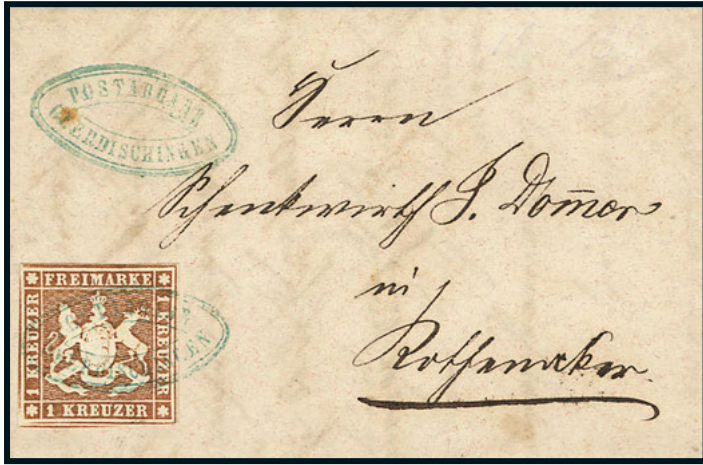 POSTABLAGE
OBERDISCHINGEN
Herrn
Schenkwirth J. Dom̄er
in
Rothenacker.
FREIMARKE
1 KREUZER
1 KREUZER
1 KREUZER